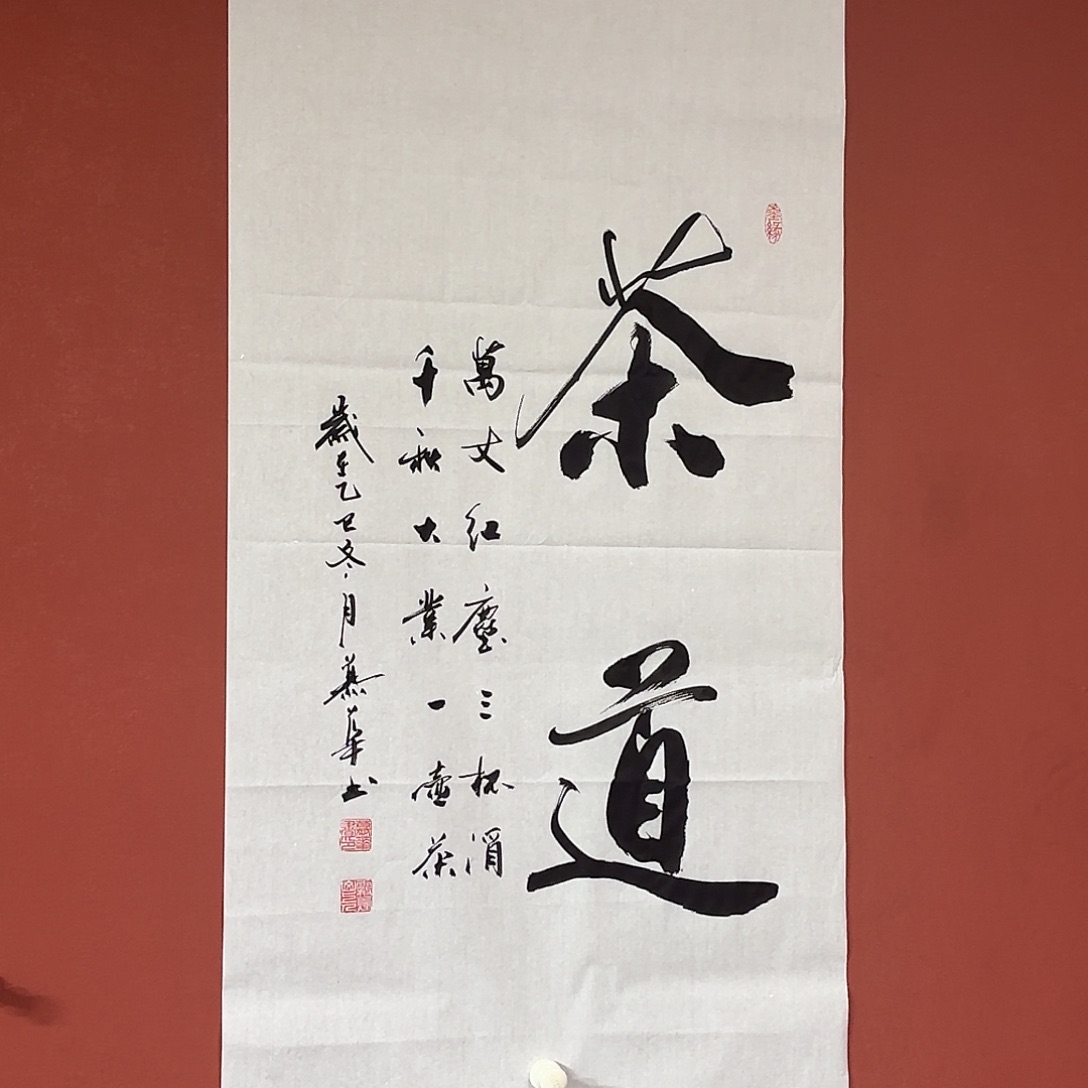 茶道
萬丈紅塵三杯酒
千秋大業一壺茶
歲在乙巳冬月慕華書